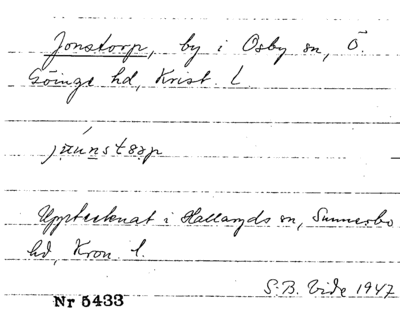 Jonstorp, by i Osby sn, Ö.
Göinge hd, Krist. l.
Upptecknat i Hallaryds sn, Sunnerbo
hd, Kron. l.
S.B. Vide 1947
Nr 5433